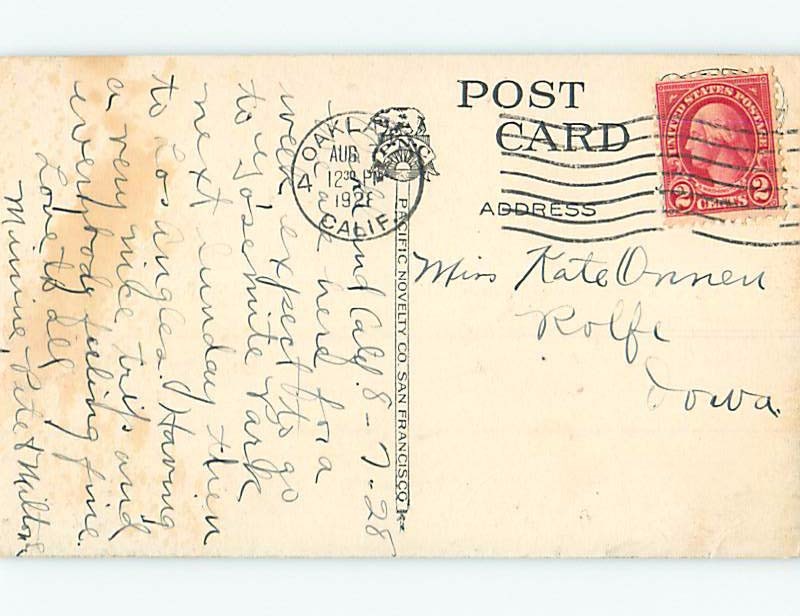 POST
CARD
ADDRESS
UNITED STATES POSTAGE
2 CENTS 2
OAKLAND
AUG
4
12 30 PM
1928
CALIF.
PACIFIC NOVELTY CO. SAN FRANCISCO
Miss Kate Onnen
Rolfe
Iowa.
Calif. 8-7-28
are here for a
week expect to go
to Yosemite Park
next Sunday then
to Los Angles. Having
a very nice trip and
everybody feeling fine.
Love to all
Minnie, Pete & Milton